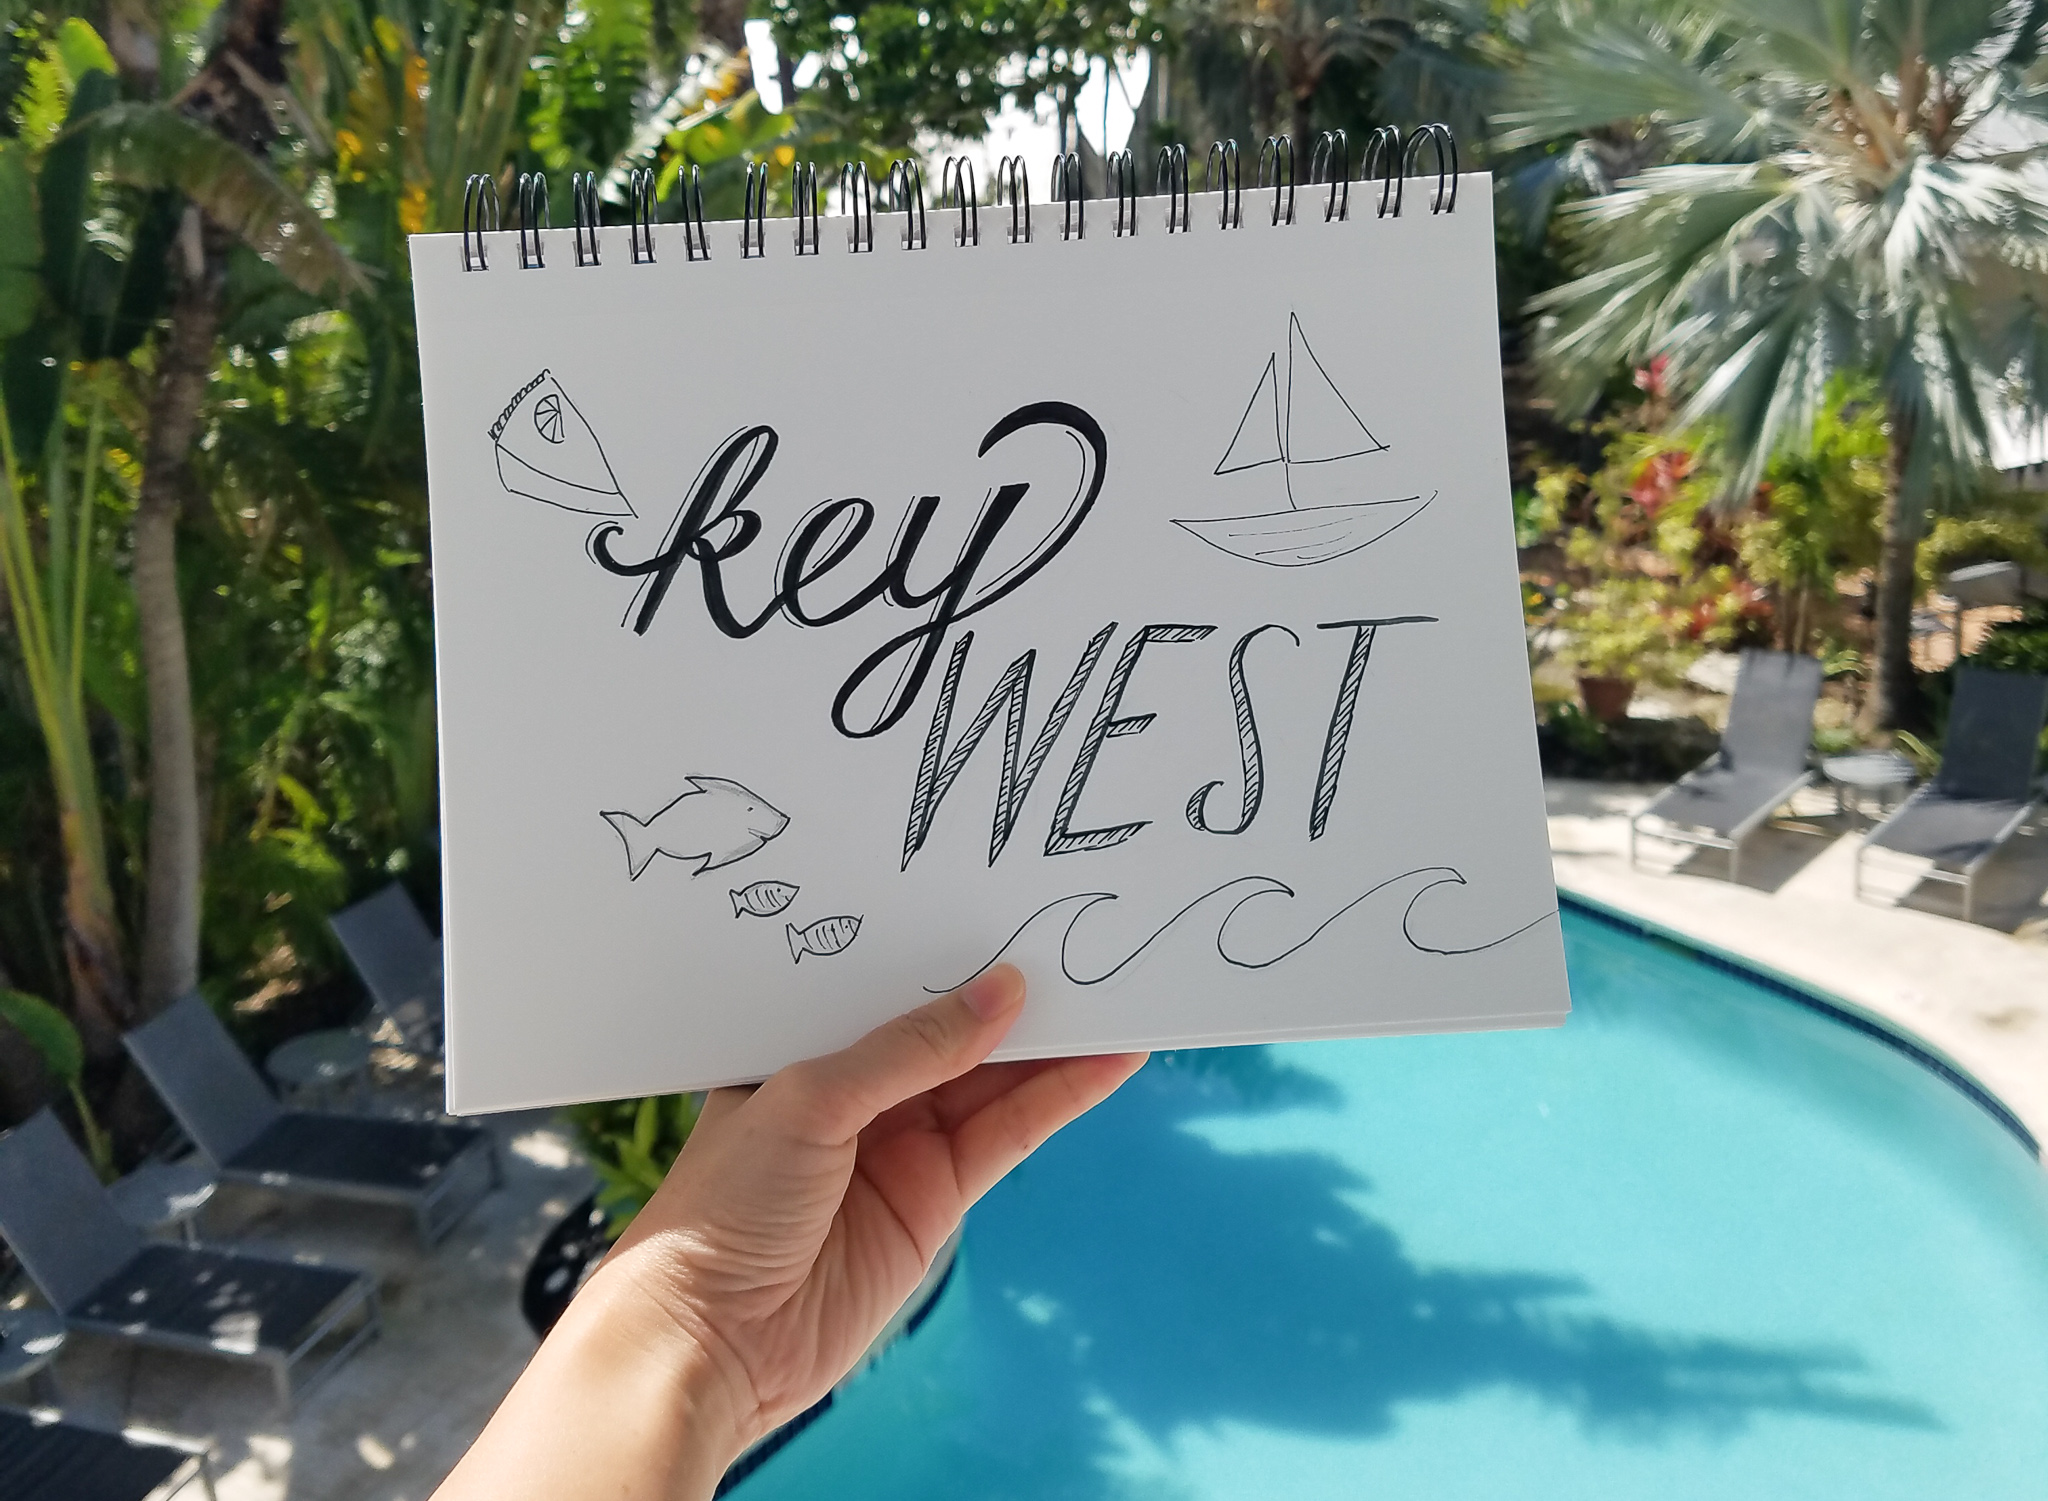 key
WEST